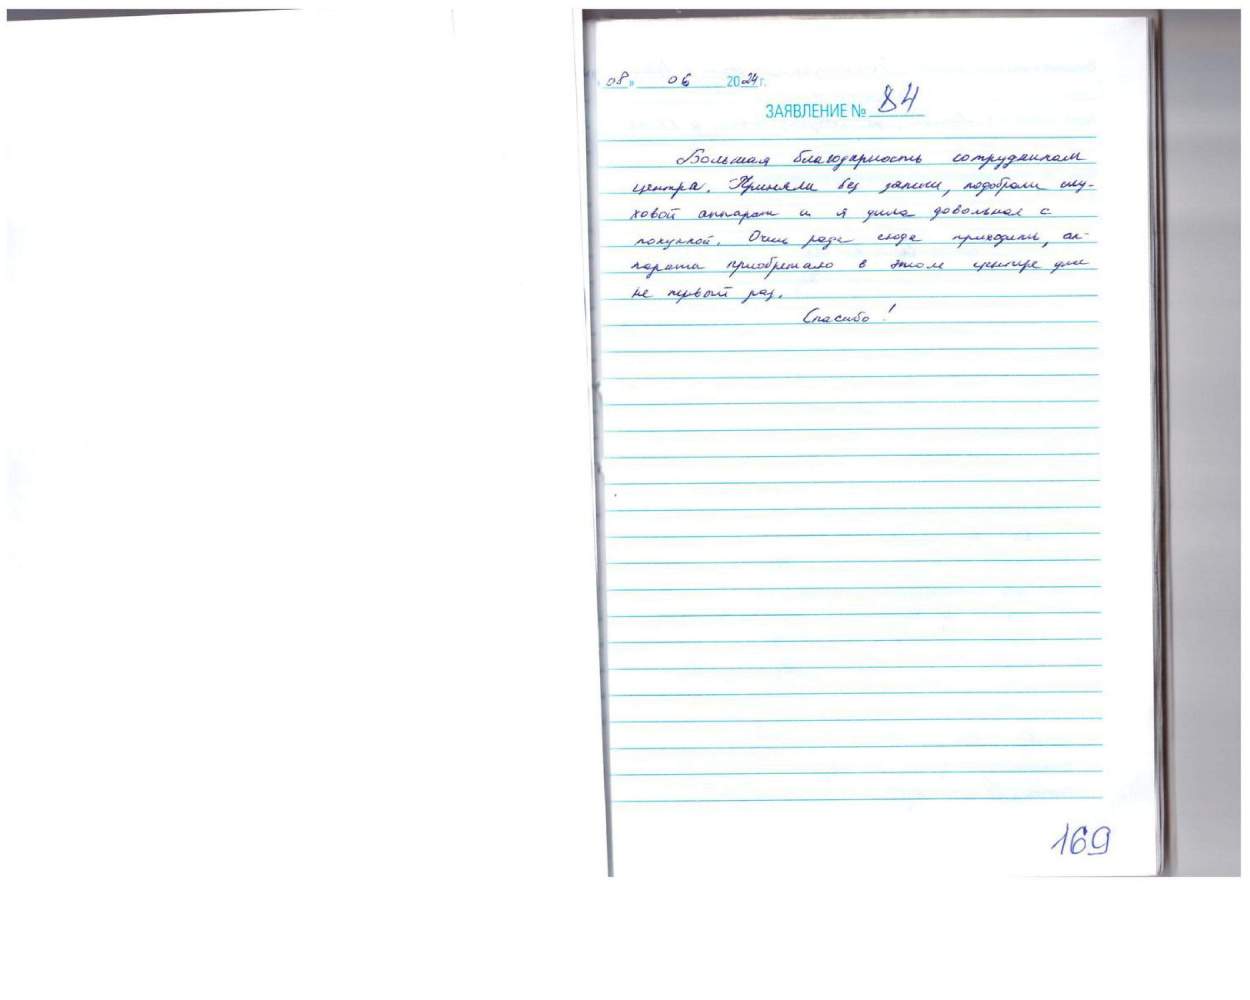 «08» 06 2024 г.
ЗАЯВЛЕНИЕ № 84
Большая благодарность сотрудникам
центра. Приняли без записи, подобрали слу-
ховой аппарат и я ушла довольная с
покупкой. Очень рада сюда приходить, ап-
параты приобретаю в этом центре уже
не первый раз.
Спасибо!
169